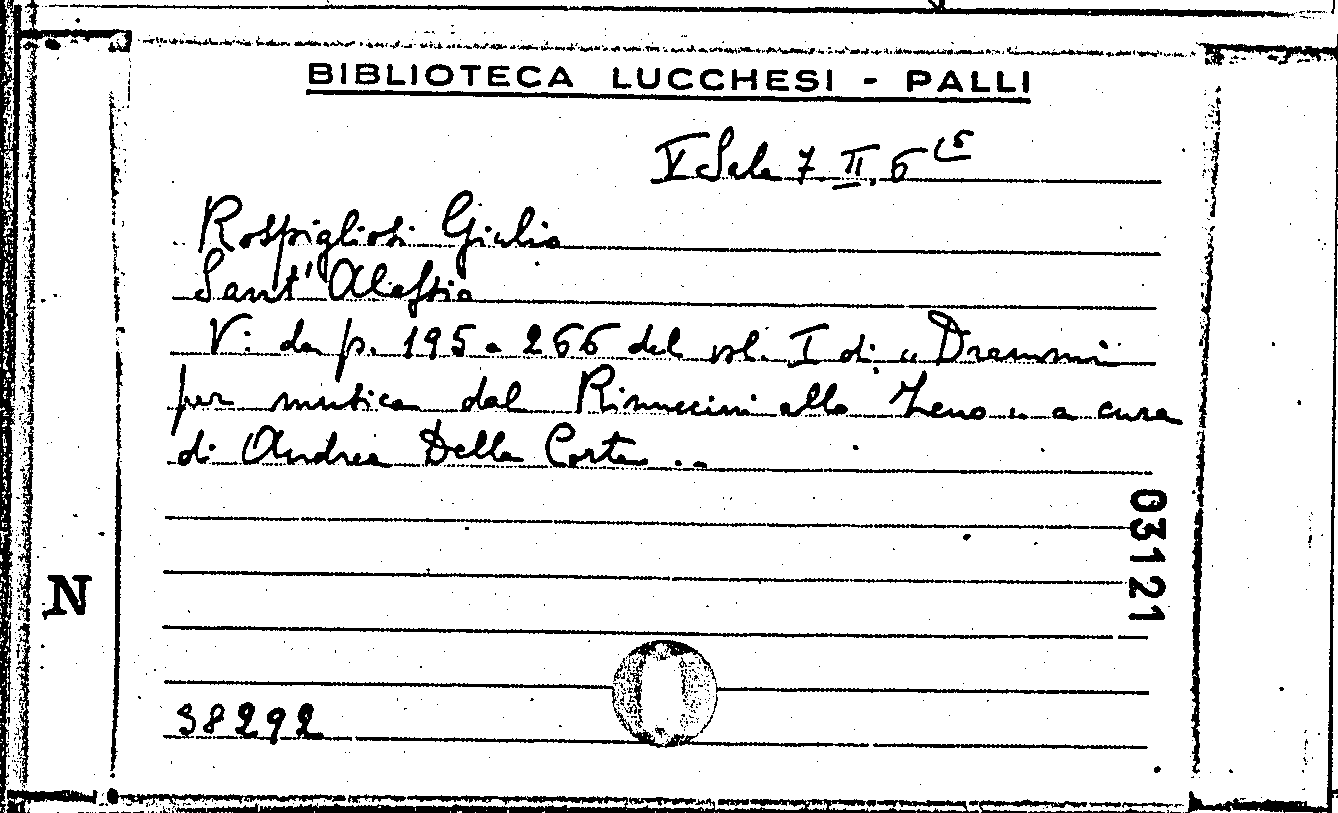 BIBLIOTECA LUCCHESI - PALLI
V Sala 7. II. 6 (5
Rospigliosi Giulio
Sant' Alessio
V: da p. 195 a 266 del vol. I di "Drammi
per musica dal Rinuccini allo Zeno" a cura
di Andrea Della Corte..
03121
N
38292